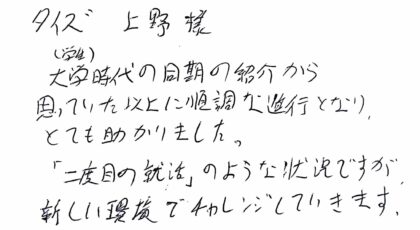 タイズ 上野様
(学生)
大学時代の同期の紹介から
思っていた以上に順調な進行となり、
とても助かりました。
「二度目の就活」のような状況ですが
新しい環境でチャレンジしていきます。